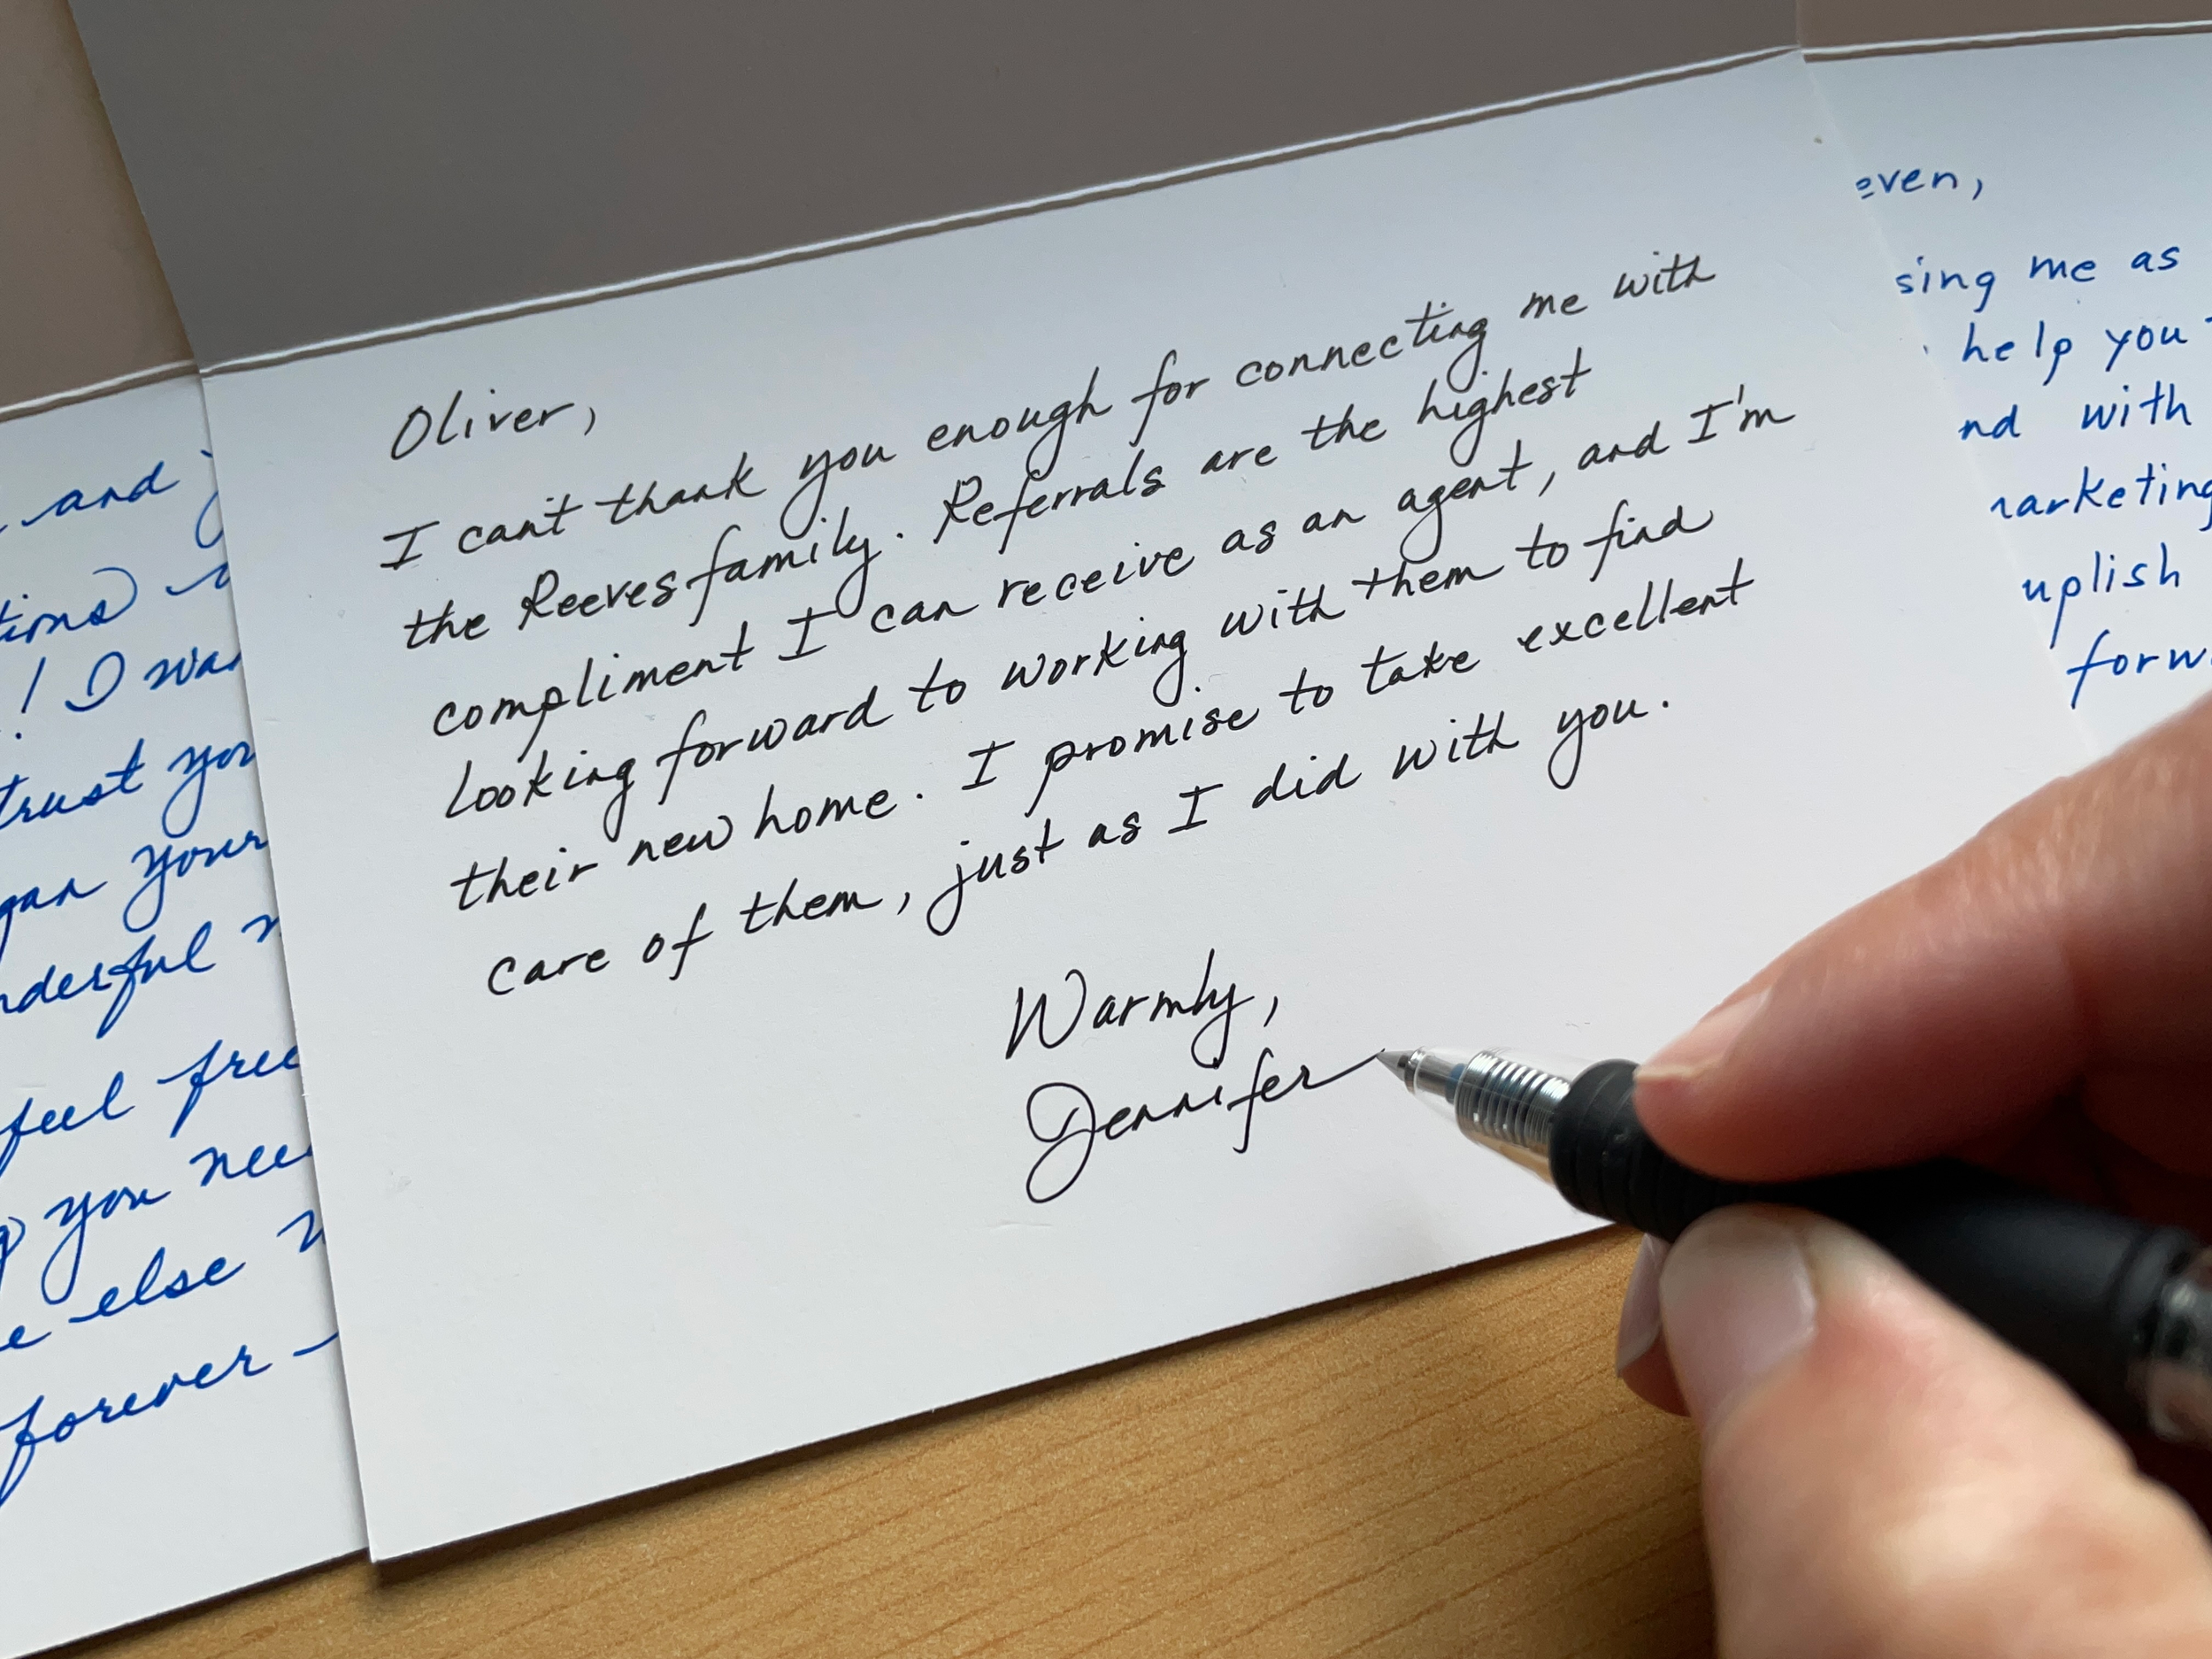 and
! I was
trust you
your
feel free
you need
else
forever
Oliver,
I can't thank you enough for connecting me with
the Reeves family. Referrals are the highest
compliment I can receive as an agent, and I'm
looking forward to working with them to find
their new home. I promise to take excellent
care of them, just as I did with you.
Warmly,
Jennifer
even,
sing me as
help you
nd with
arketing
uplish
forw